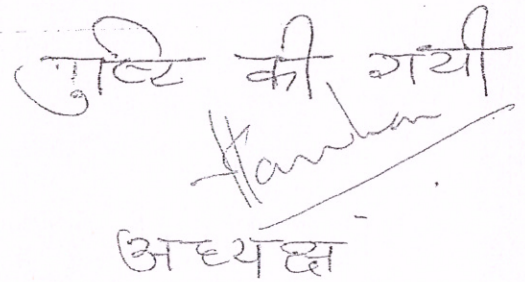 पुष्टि की गयी
अध्यक्ष